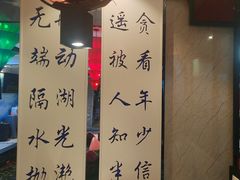 贪看年少信
遥被人知半
动湖光潋
无端隔水抛